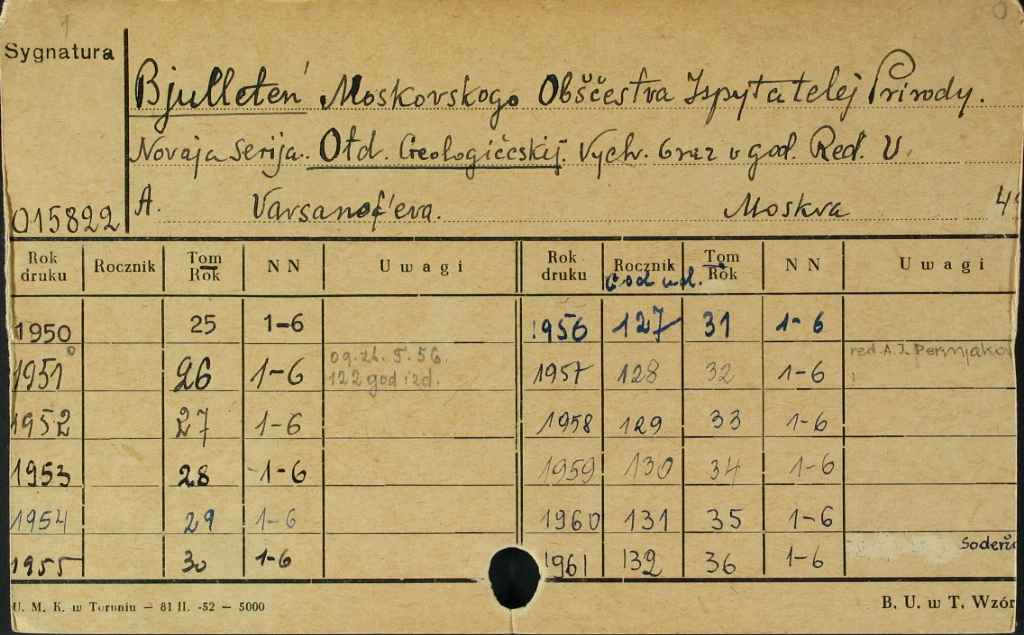 Sygnatura
Bjulleteń Moskovskogo Obščestva Ispytatelej Prirody.
Novaja Serija. Otd. Geologičeskij. Vych. 6 raz v god. Red. V.
015822 A. Varsanof'eva. Moskva 4
Rok druku Rocznik Tom Rok NN Uwagi Rok druku Rocznik Tom Rok NN Uwagi
God izd.
1950 25 1-6 1956 127 31 1-6
1951 26 1-6 122 god izd. 1957 128 32 1-6 red. A. I. Permjakov
1952 27 1-6 1958 129 33 1-6
1953 28 1-6 1959 130 34 1-6
1954 29 1-6 1960 131 35 1-6
1955 30 1-6 1961 132 36 1-6
U. M. K. w Toruniu – 81 II. -52 – 5000 B. U. w T. Wzór